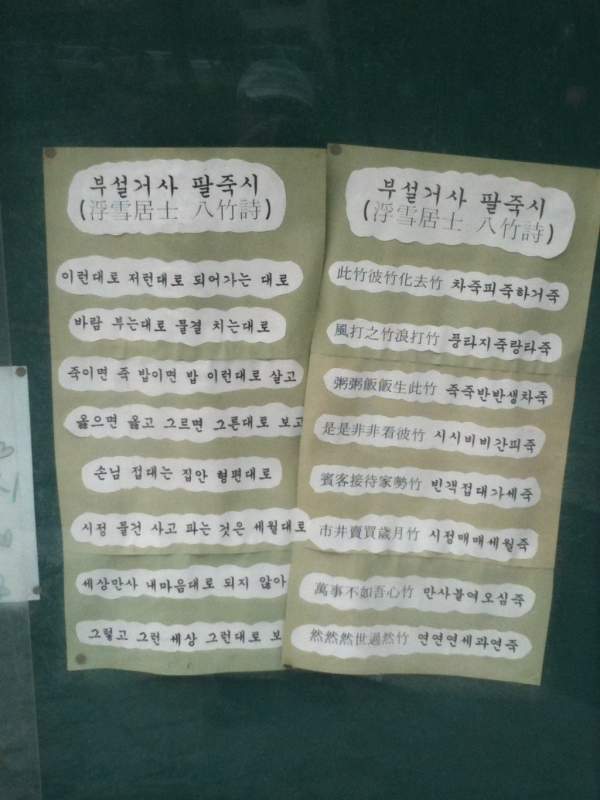 부설거사 팔죽시
(浮雪居士 八竹詩)
이런대로 저런대로 되어가는 대로
바람 부는대로 물결 치는대로
죽이면 죽 밥이면 밥 이런대로 살고
옳으면 옳고 그르면 그른대로 보고
손님 접대는 집안 형편대로
시정 물건 사고 파는 것은 세월대로
세상만사 내마음대로 되지 않아
그렇고 그런 세상 그런대로 보
부설거사 팔죽시
(浮雪居士 八竹詩)
此竹彼竹化去竹 차죽피죽하거죽
風打之竹浪打竹 풍타지죽랑타죽
粥粥飯飯生此竹 죽죽반반생차죽
是是非非看彼竹 시시비비간피죽
賓客接待家勢竹 빈객접대가세죽
市井賣買歲月竹 시정매매세월죽
萬事不如吾心竹 만사불여오심죽
然然然世過然竹 연연연세과연죽